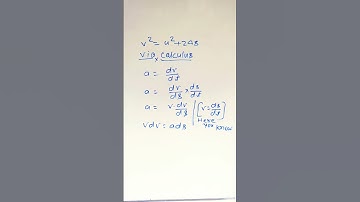 v² = u² + 2as
via, calculus
a = dv/dt
a = dv/ds × ds/dt
a = v dv/ds [v = ds/dt]
Here you know
vdv = ads